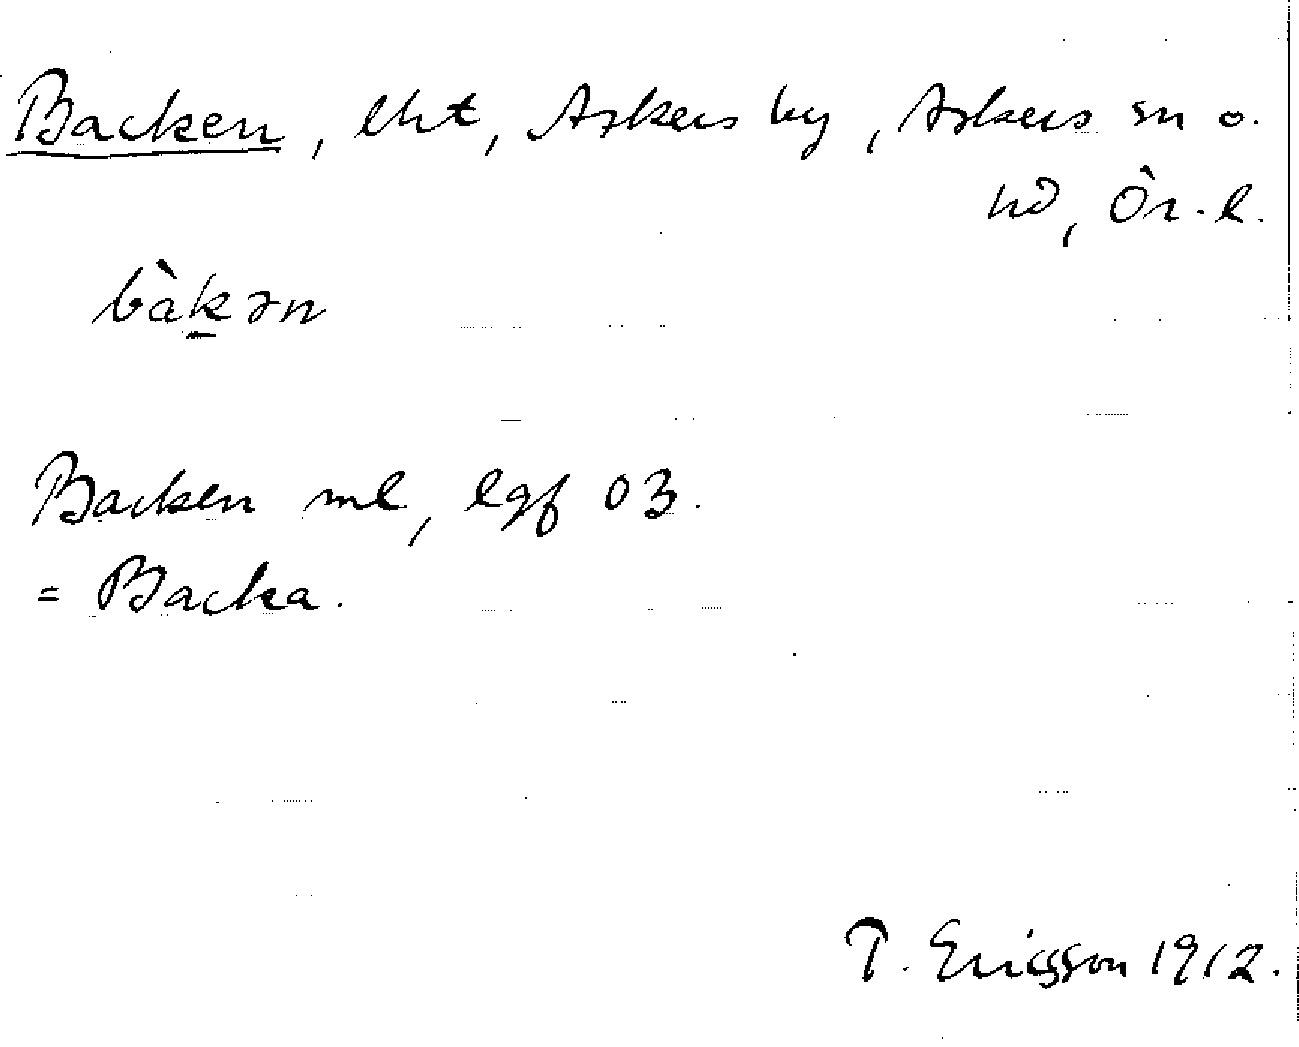 Backen, lht, Askers by, Askers sn o.
hd, Ör. l.
bàkən
Backen ml, lgf 03.
= Backa.
T. Ericsson 1912.